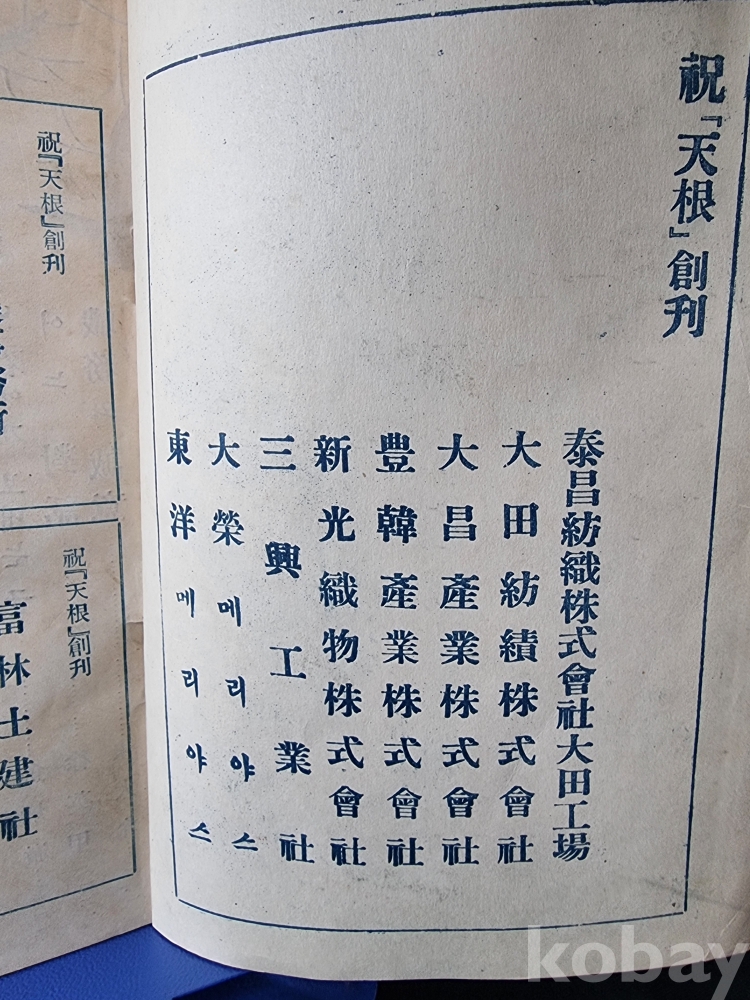 祝「天根」創刊
泰昌紡織株式會社大田工場
大田紡績株式會社
大昌產業株式會社
豊韓產業株式會社
新光織物株式會社
三興工業社
大榮메리야스
東洋메리야스
祝「天根」創刊
祝「天根」創刊
富林土建社
kobay